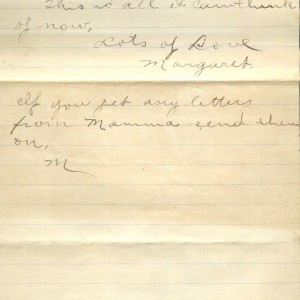 This is all I can think
of now,
Lots of Love
Margaret.
If you get any letters
from Mamma send them
on,
M